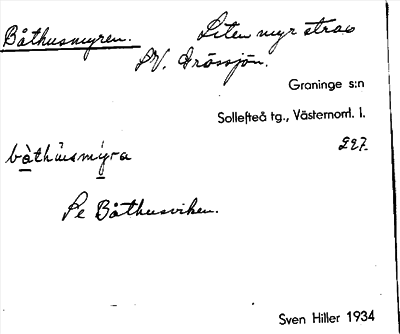 Båthusmyren. Liten myr strax
SV. Grössjön.
Graninge s:n
Sollefteå tg., Västernorrl. l.
227.
bàthu̇smýra
Se Båthusviken.
Sven Hiller 1934